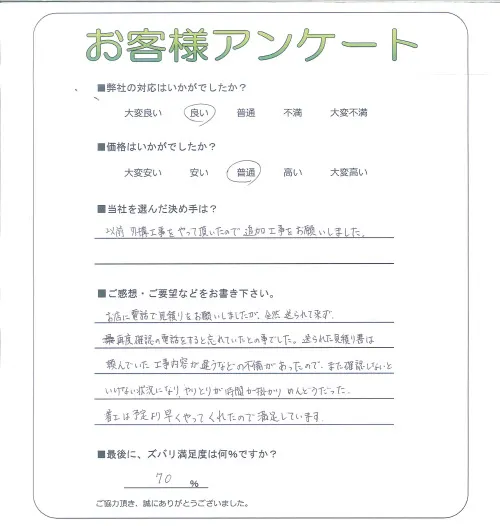 お客様アンケート
■弊社の対応はいかがでしたか？
大変良い 良い 普通 不満 大変不満
■価格はいかがでしたか？
大変安い 安い 普通 高い 大変高い
■当社を選んだ決め手は？
以前外構工事をやって頂いたので追加工事をお願いしました。
■ご感想・ご要望などをお書き下さい。
お店に電話で見積りをお願いしましたが、全然送られて来ず、
再度確認の電話をすると忘れていたとの事でした。送られた見積り書は
頼んでいた工事内容が違うなどの不備があったので、また確認しないと
いけない状況になり、やりとりが時間が掛かりめんどうだった。
着工は予定より早くやってくれたので満足しています。
■最後に、ズバリ満足度は何%ですか？
70 %
ご協力頂き、誠にありがとうございました。